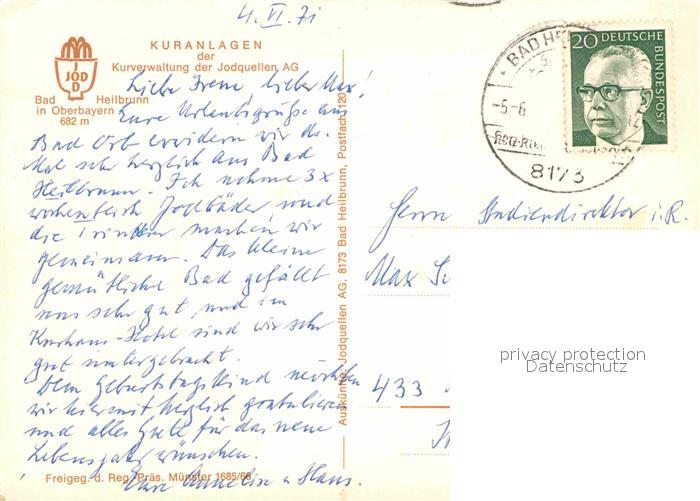 4. VI. 71
KURANLAGEN
der
Kurverwaltung der Jodquellen AG
JOD
Bad Heilbrunn
in Oberbayern
682 m
Liebe Irene, lieber Max!
Eure Urlaubsgrüße aus
Bad Orb erwidern wir ds.
Mal sehr herzlich aus Bad
Heilbrunn. Ich nehme 3x
wöchentlich Jodbäder und
die Trinkkur machen wir
gemeinsam. Das kleine
gemütliche Bad gefällt
uns sehr gut, und im
Kurhaus-Hotel sind wir sehr
gut untergebracht.
Dem Geburtstagskind möchten
wir hiermit herzlich gratulieren
und alles Gute für das neue
Lebensjahr wünschen.
Eure Annelise u. Hans.
Freigeg. d. Reg.-Präs. Münster 1685/66
Auskünfte: Jodquellen AG, 8173 Bad Heilbrunn, Postfach 120
BAD HE
-5.-6
8173
20 DEUTSCHE
BUNDESPOST
Herrn Studiendirektor i.R.
Max
433
privacy protection
Datenschutz